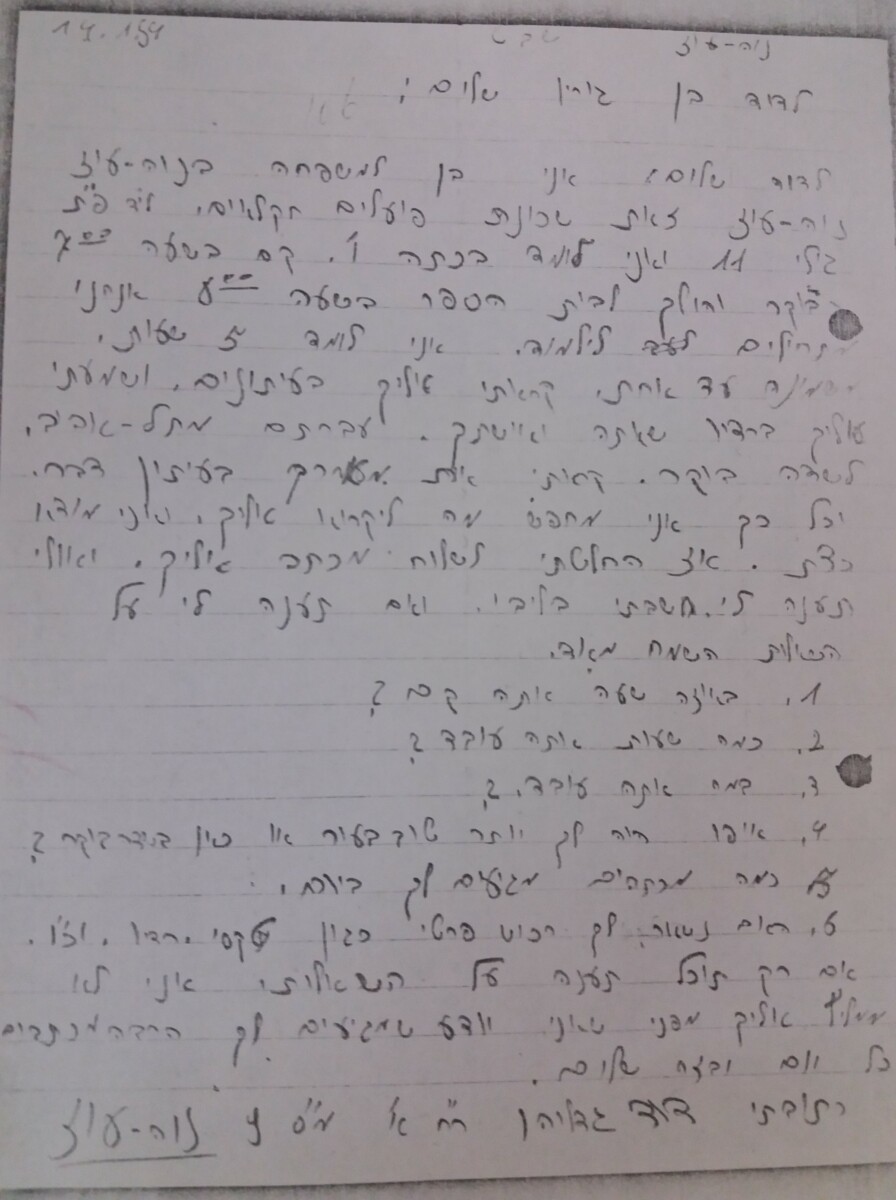 נוה-עוז שבט 14.1.54
לדוד בן גוריון שלום!
לדוד שלום! אני בן למשפחה בנוה-עוז
נוה-עוז זאת שכונת פועלים חקלאיים. ליד פ"ת
גילי 11 ואני לומד בכתה ו'. קם בשעה
בבוקר והולך לבית הספר בשעה אנחנו
מתחילים לימוד. אני לומד 5 שעות.
משמונה עד אחת. קראתי עליך בעיתונים. ושמעתי
עליך ברדיו שאתה ואישתך. עברתם מתל-אביב.
לשדה בוקר. קראתי את מאמרך בעיתון דבר.
וכל כך אני מחפש מה ליקרוא אליך. ואני מוצא
כצת. אז החלטתי לשלוח מכתב אליך. ואולי
תענה לי. חשבתי בליבי. ואם תענה לי על
השאלות השמח מאוד.
1. באיזה שעה אתה קם?
2. כמה שעות אתה עובד?
3. במה אתה עובד.?
4. איפו היה לך יותר טוב בעיר או כאן בשדה בוקר?
5 כמה מכתבים מגיעים לך ביום.
6. האם נשאר לך רכוש פרטי כגון טקסי. רדיו. וכו'.
אם רק תוכל תענה על השאילותי אני לא
ממליץ אליך מפני שאני יודע שמגיעים לך הרבה מכתבים
כל יום ובזה שלום.
כתובתי דוד גדליהו רח' א' מ"ס 9 נוה-עוז